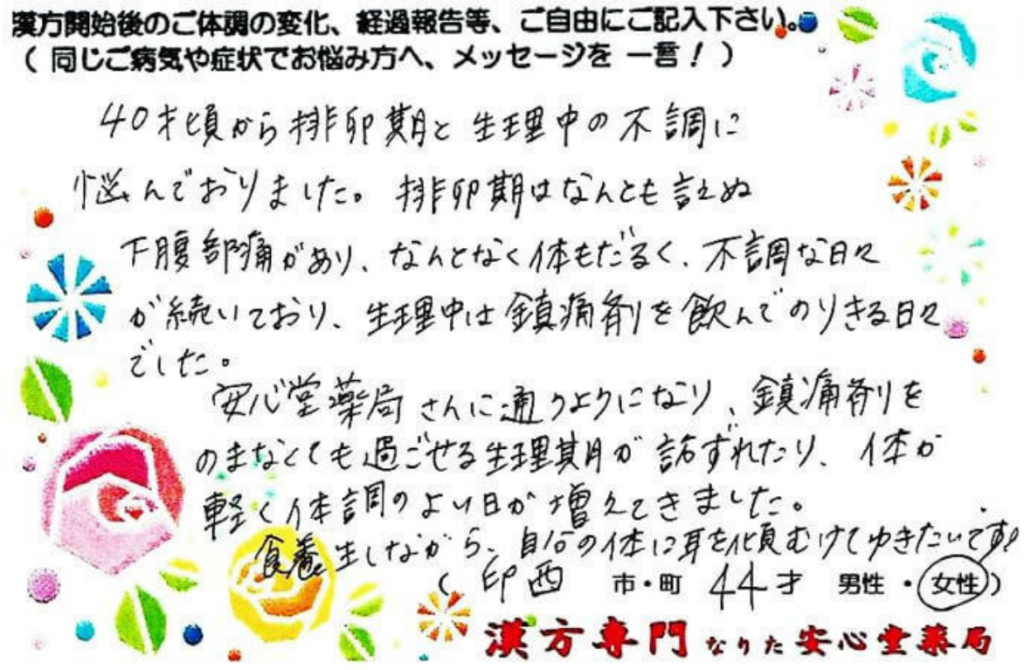 漢方開始後のご体調の変化、経過報告等、ご自由にご記入下さい。
（同じご病気や症状でお悩み方へ、メッセージを一言！）
40才頃から排卵期と生理中の不調に
悩んでおりました。排卵期はなんとも言えぬ
下腹部痛があり、なんとなく体もだるく、不調な日々
が続いており、生理中は鎮痛剤を飲んでのりきる日々
でした。
安心堂薬局さんに通うようになり、鎮痛剤を
のまなくても過ごせる生理期が訪ずれたり、体が
軽く体調のよい日が増えてきました。
食養生しながら、自分の体に耳を傾むけてゆきたいです。
（印西 市・町 44才 男性・女性）
漢方専門なりた安心堂薬局